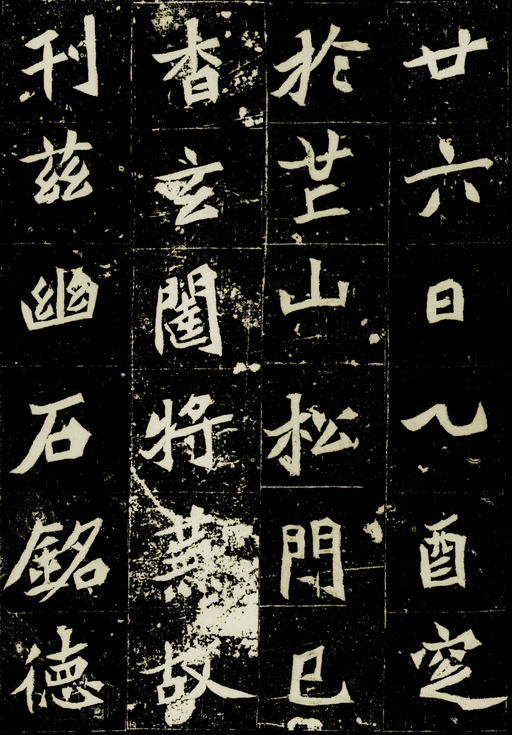 廿六日乙酉窆
於芒山松門巳
杳玄闥將蕪故
刊茲幽石銘德